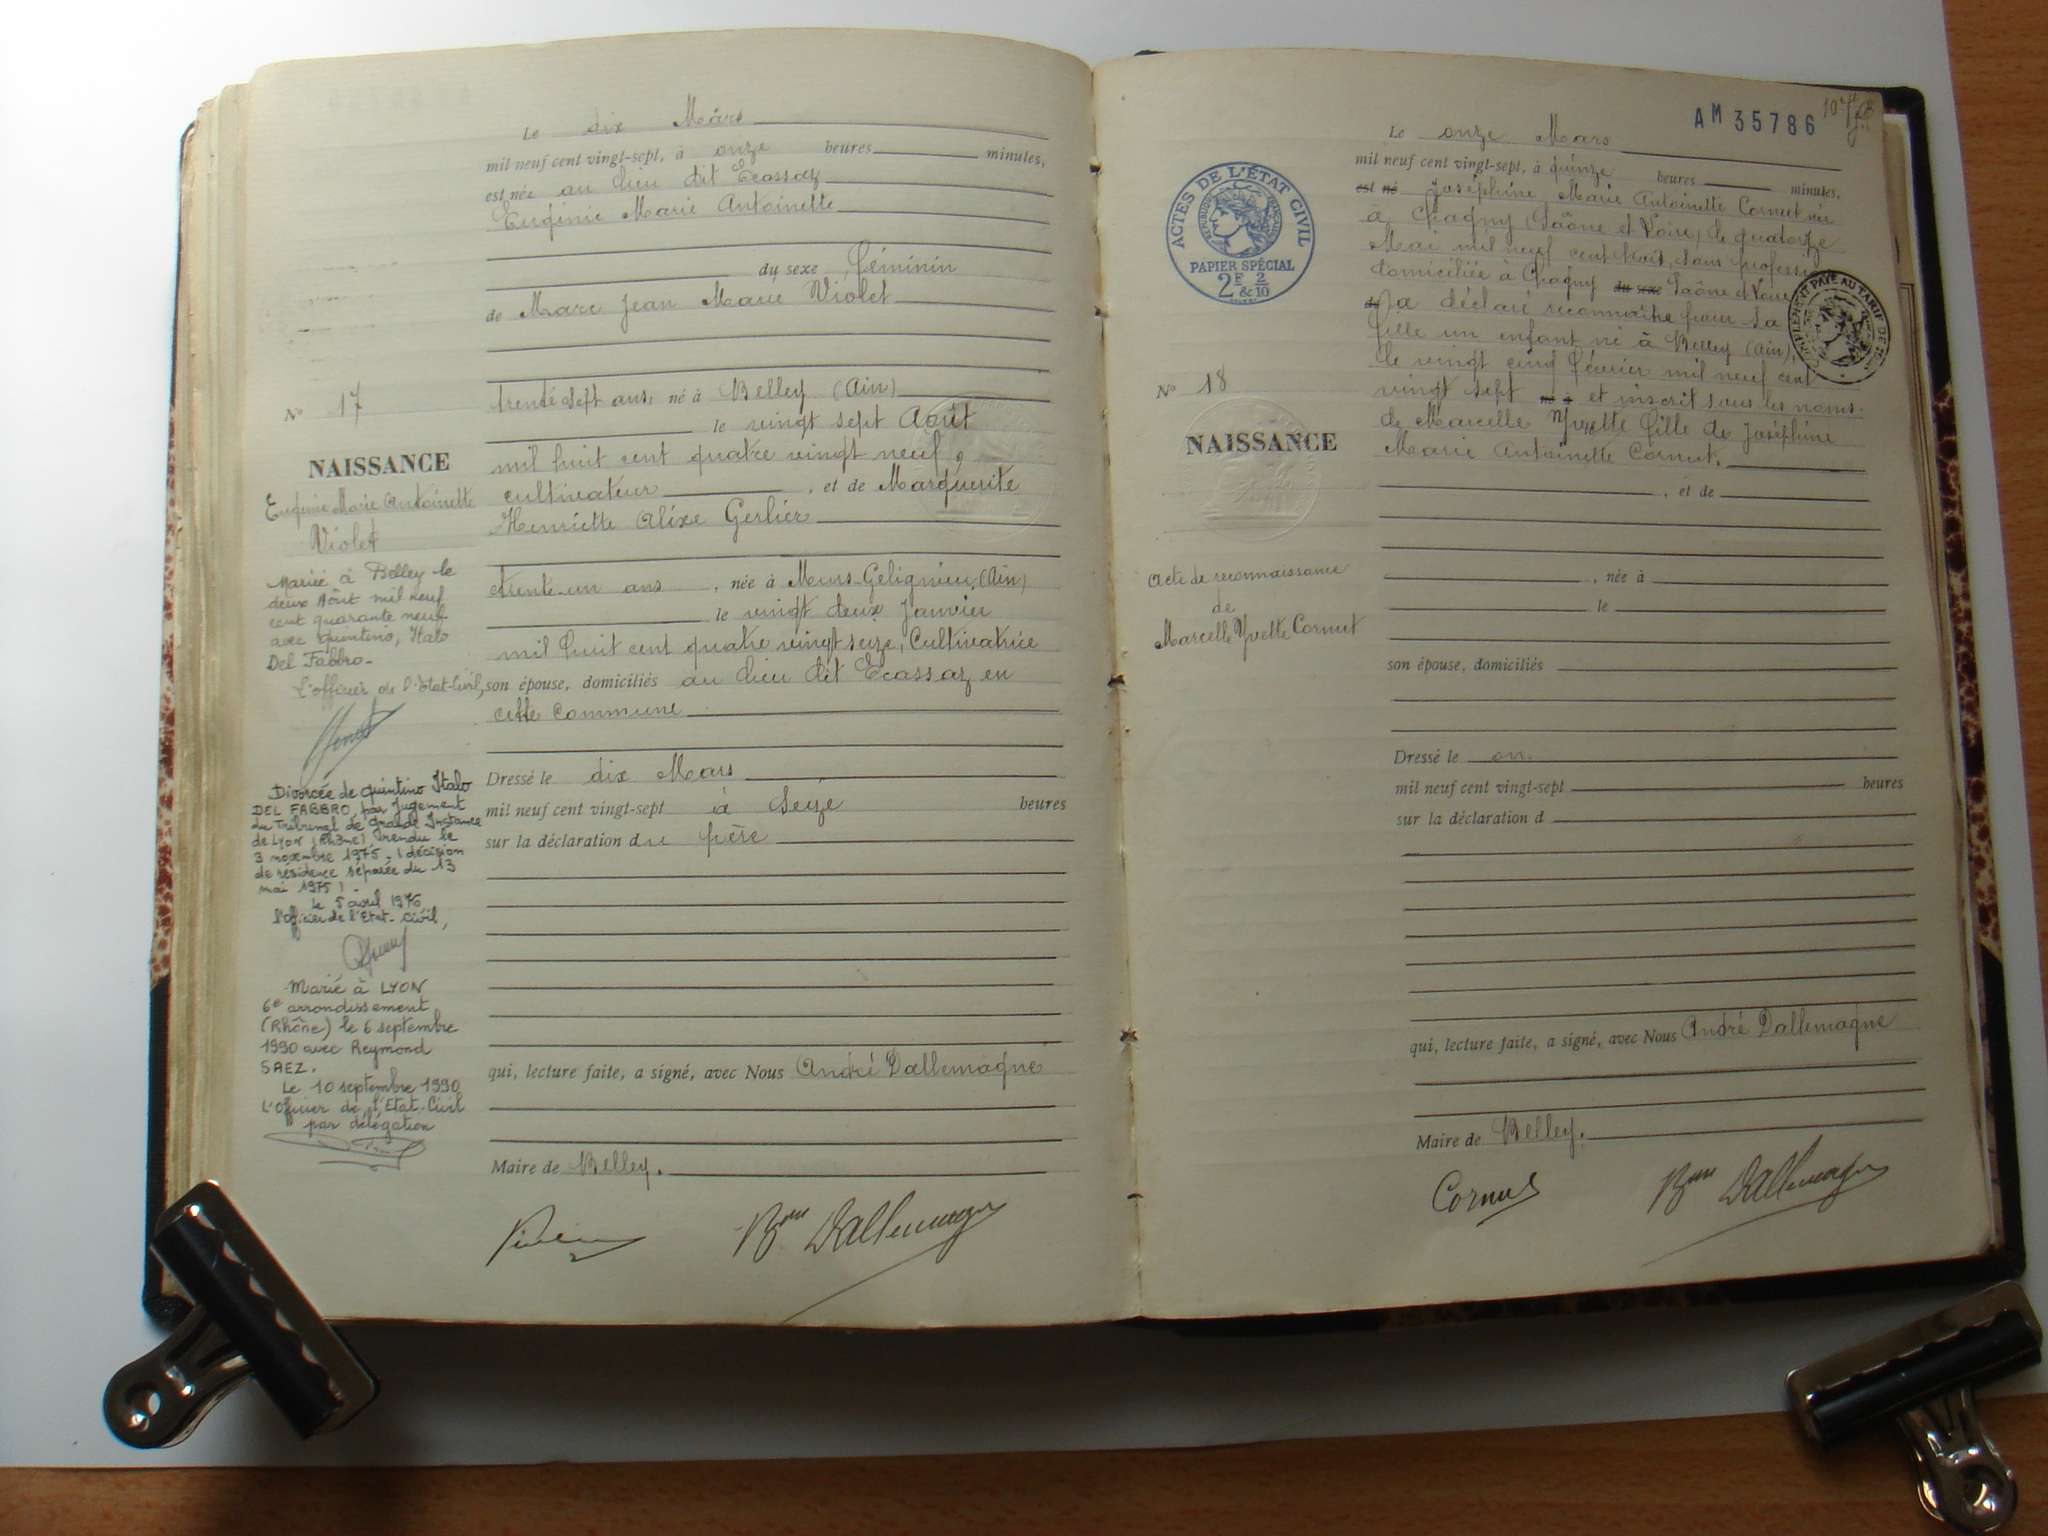 Le dix Mars
mil neuf cent vingt-sept, à onze heures minutes,
est née au lieu dit Ecassaz
Eugénie Marie Antoinette
du sexe féminin
de Marc Jean Marie Violet
trente sept ans, né à Belley (Ain)
le vingt sept Août
mil huit cent quatre vingt neuf,
cultivateur , et de Marguerite
Henriette Alixe Gerlier
trente-un ans , née à Murs-Gelignieu (Ain)
le vingt deux Janvier
mil huit cent quatre vingt seize, Cultivatrice
son épouse, domiciliés au lieu dit Ecassaz en
cette commune
Dressé le dix Mars
mil neuf cent vingt-sept à Seize heures
sur la déclaration du père
qui, lecture faite, a signé, avec Nous André Dallemagne
Maire de Belley.
Bon Dallemagne
No 17
NAISSANCE
Eugénie Marie Antoinette
Violet
Mariée à Belley le
deux Août mil neuf
cent quarante neuf
avec Quintino, Italo
Del Fabbro.
L'officier de l'Etat-Civil,
Divorcée de Quintino Italo
DEL FABBRO, par jugement
du Tribunal de Grande Instance
de Lyon (Rhône) rendu le
3 novembre 1975. (décision
de résidence séparée du 13
mai 1975).
Le 5 avril 1976
l'officier de l'Etat-Civil,
Marié à LYON
6e arrondissement
(Rhône) le 6 septembre
1990 avec Reymond
SAEZ.
Le 10 septembre 1990
L'Officier de l'Etat-Civil
par délégation
AM 35786
ACTES DE L'ÉTAT CIVIL
RÉPUBLIQUE FRANÇAISE
PAPIER SPÉCIAL
2F & 2/10
SUPPLÉMENT PAYÉ AU TARIF DE
Le onze Mars
mil neuf cent vingt-sept, à quinze heures minutes,
est né Joséphine Marie Antoinette Cornut née
à Chagny (Saône et Loire) le quatorze
Mai mil neuf cent trois, sans profession
domiciliée à Chagny du sexe Saône et Loire
de a déclaré reconnaître pour sa
fille un enfant né à Belley (Ain),
le vingt cinq février mil neuf cent
vingt sept né à et inscrit sous les noms
de Marcelle Yvette fille de Joséphine
Marie Antoinette Cornut.
, et de
, née à
le
son épouse, domiciliés
Dressé le on
mil neuf cent vingt-sept heures
sur la déclaration d
qui, lecture faite, a signé, avec Nous André Dallemagne
Maire de Belley.
Cornut
Bon Dallemagne
No 18
NAISSANCE
Acte de reconnaissance
de
Marcelle Yvette Cornut